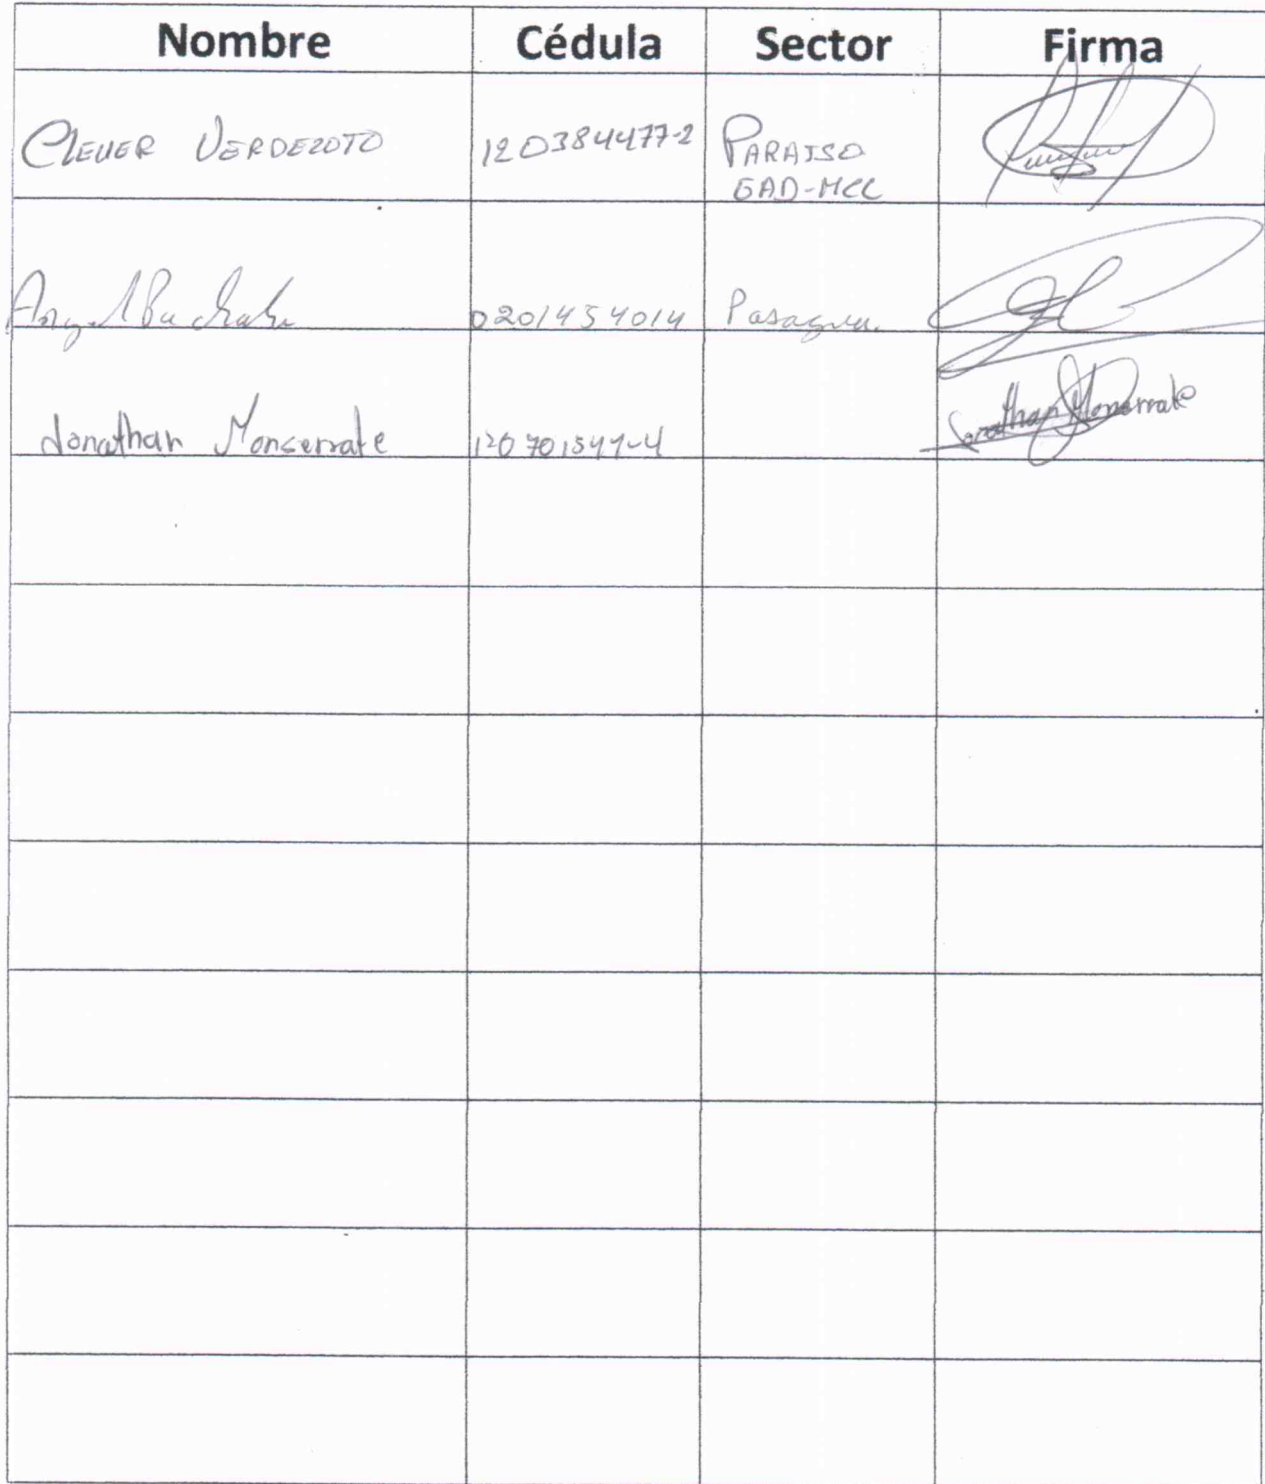 Nombre Cédula Sector Firma
CLEVER VERDEZOTO 120384477-2 PARAISO
GAD-MCC
Angel 0201454014 Pasagua
Jonathan Monserrate Jonathan Monserrate